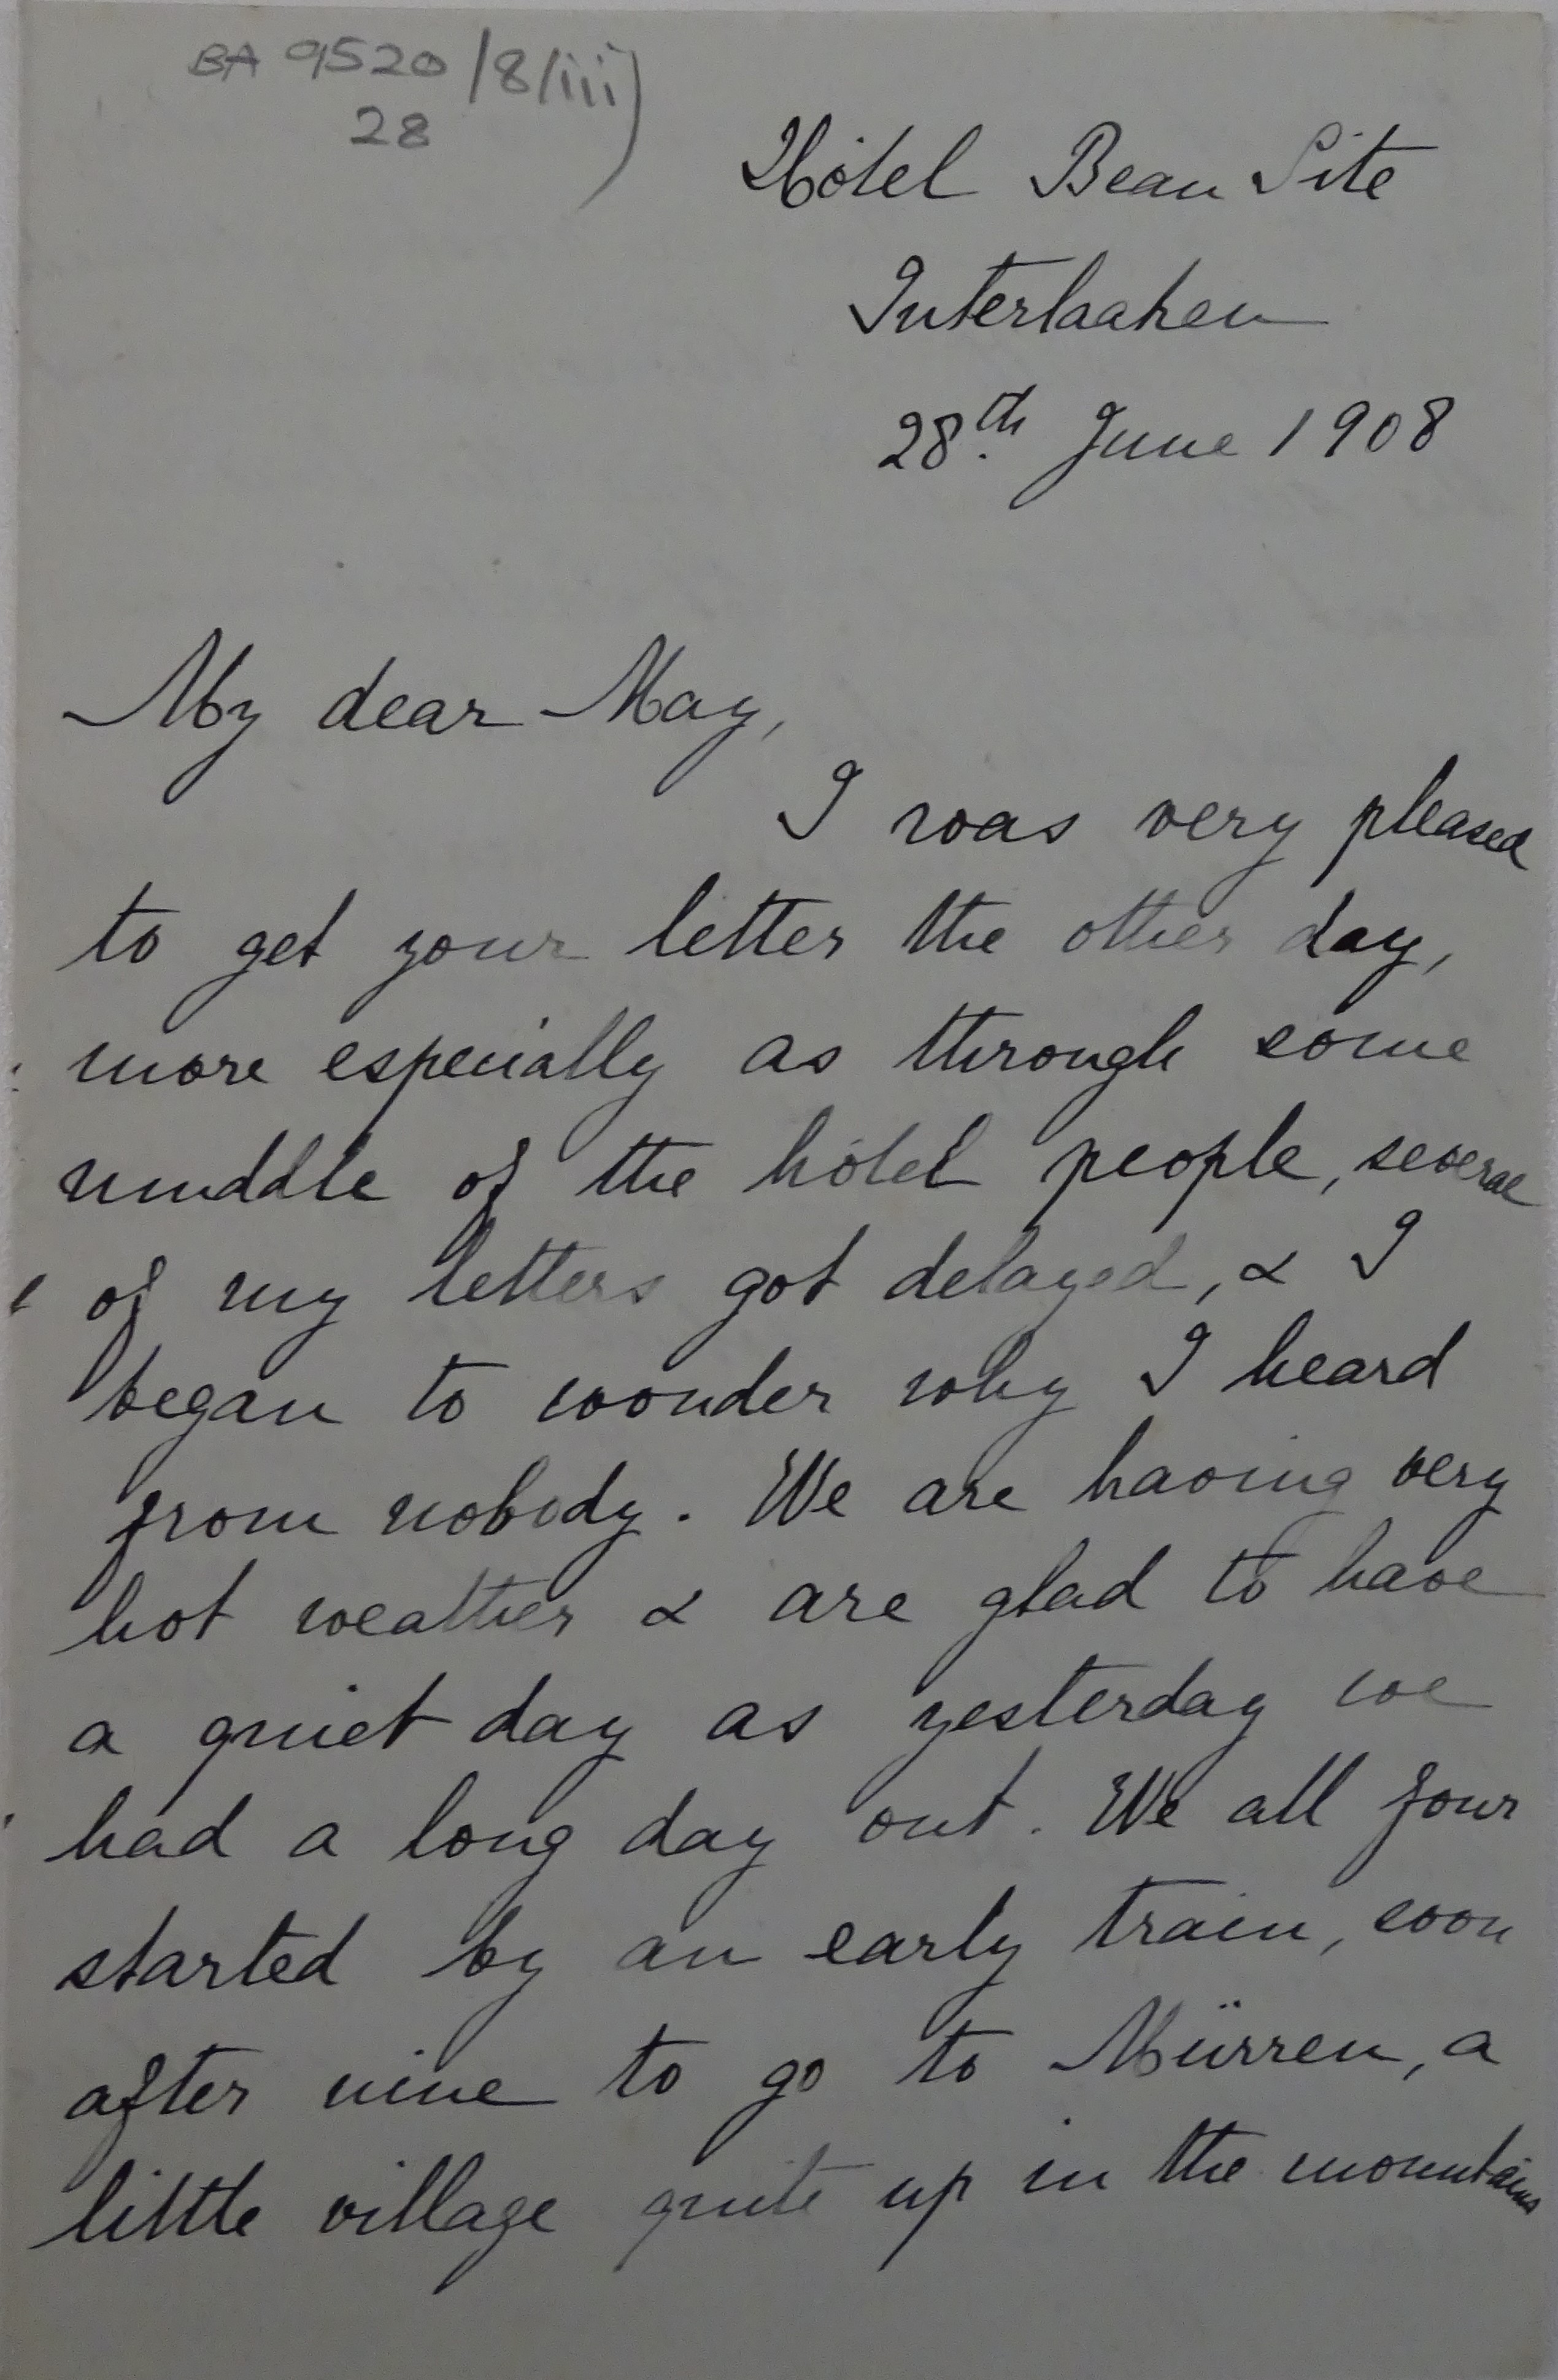 BA 9520/8/iii)
28
Hôtel Beau Site
Interlaaken
28th. June 1908
My dear May,
I was very pleased
to get your letter the other day,
more especially as through some
muddle of the hôtel people, several
of my letters got delayed, & I
began to wonder why I heard
from nobody. We are having very
hot weather & are glad to have
a quiet day as yesterday we
had a long day out. We all four
started by an early train, soon
after nine to go to Mürren, a
little village quite up in the mountains